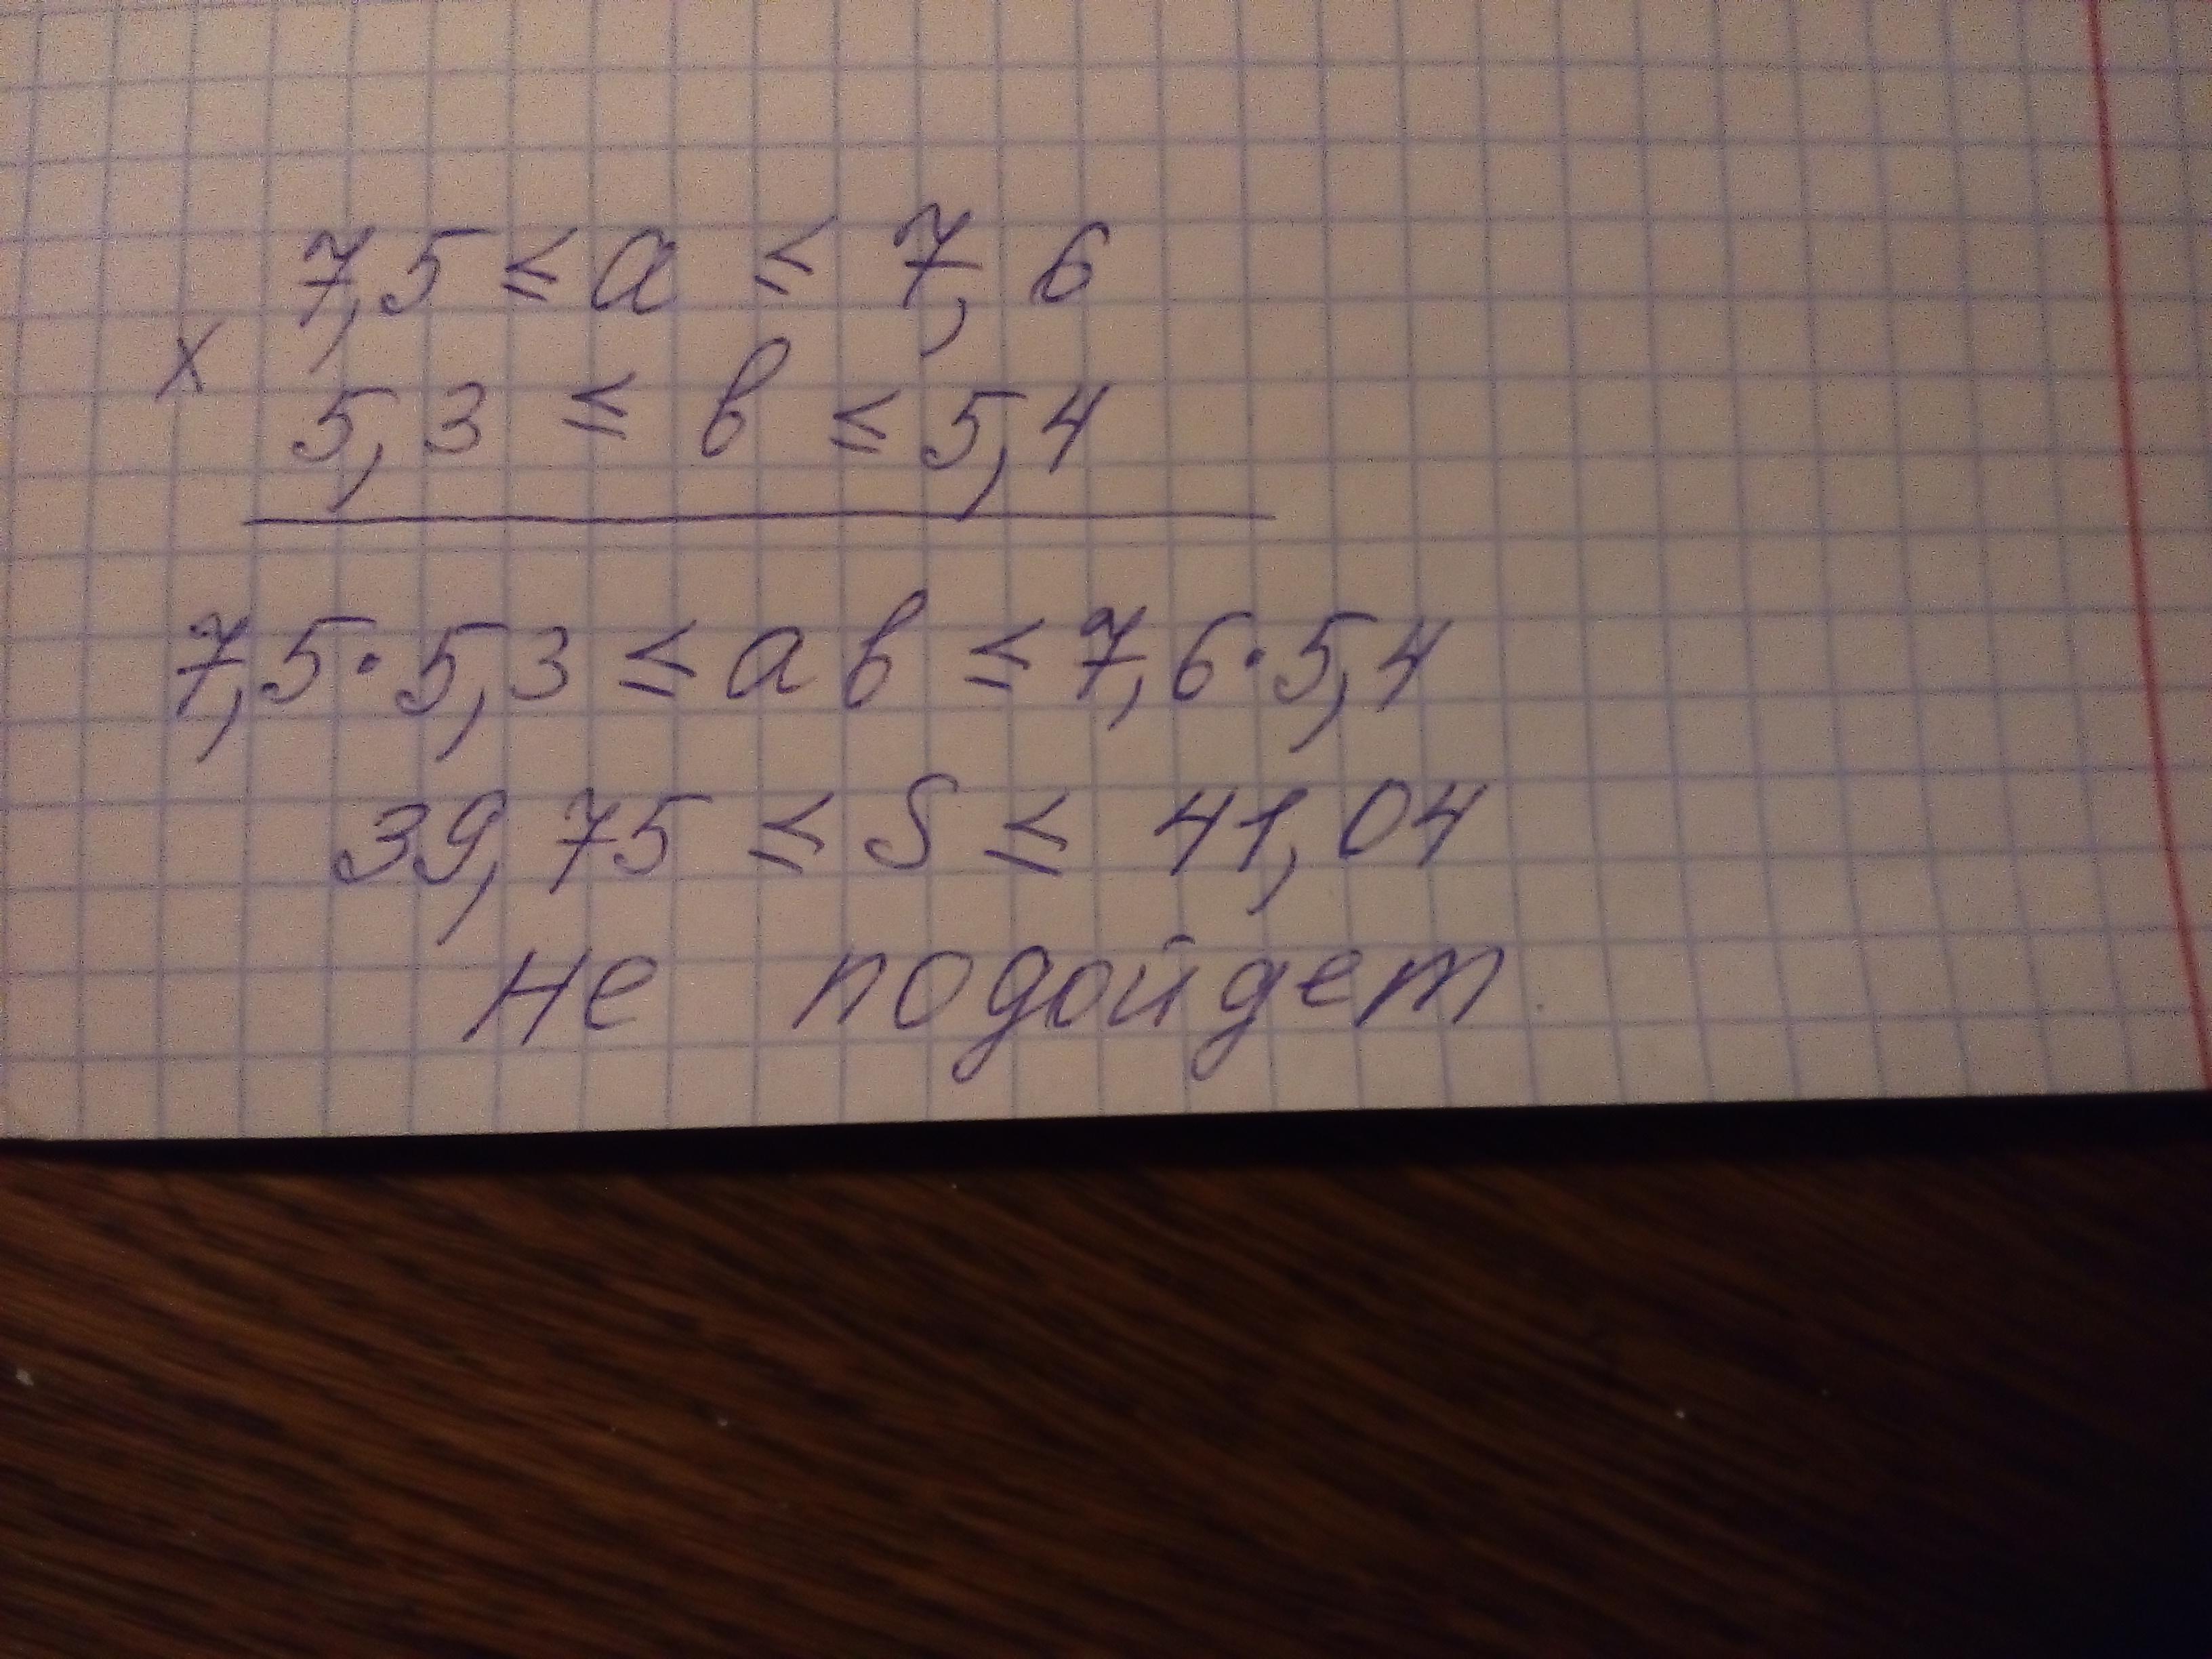 7,5 ≤ a ≤ 7,6
х
5,3 ≤ в ≤ 5,4
7,5·5,3 ≤ a в ≤ 7,6·5,4
39,75 ≤ S ≤ 41,04
не подойдет.